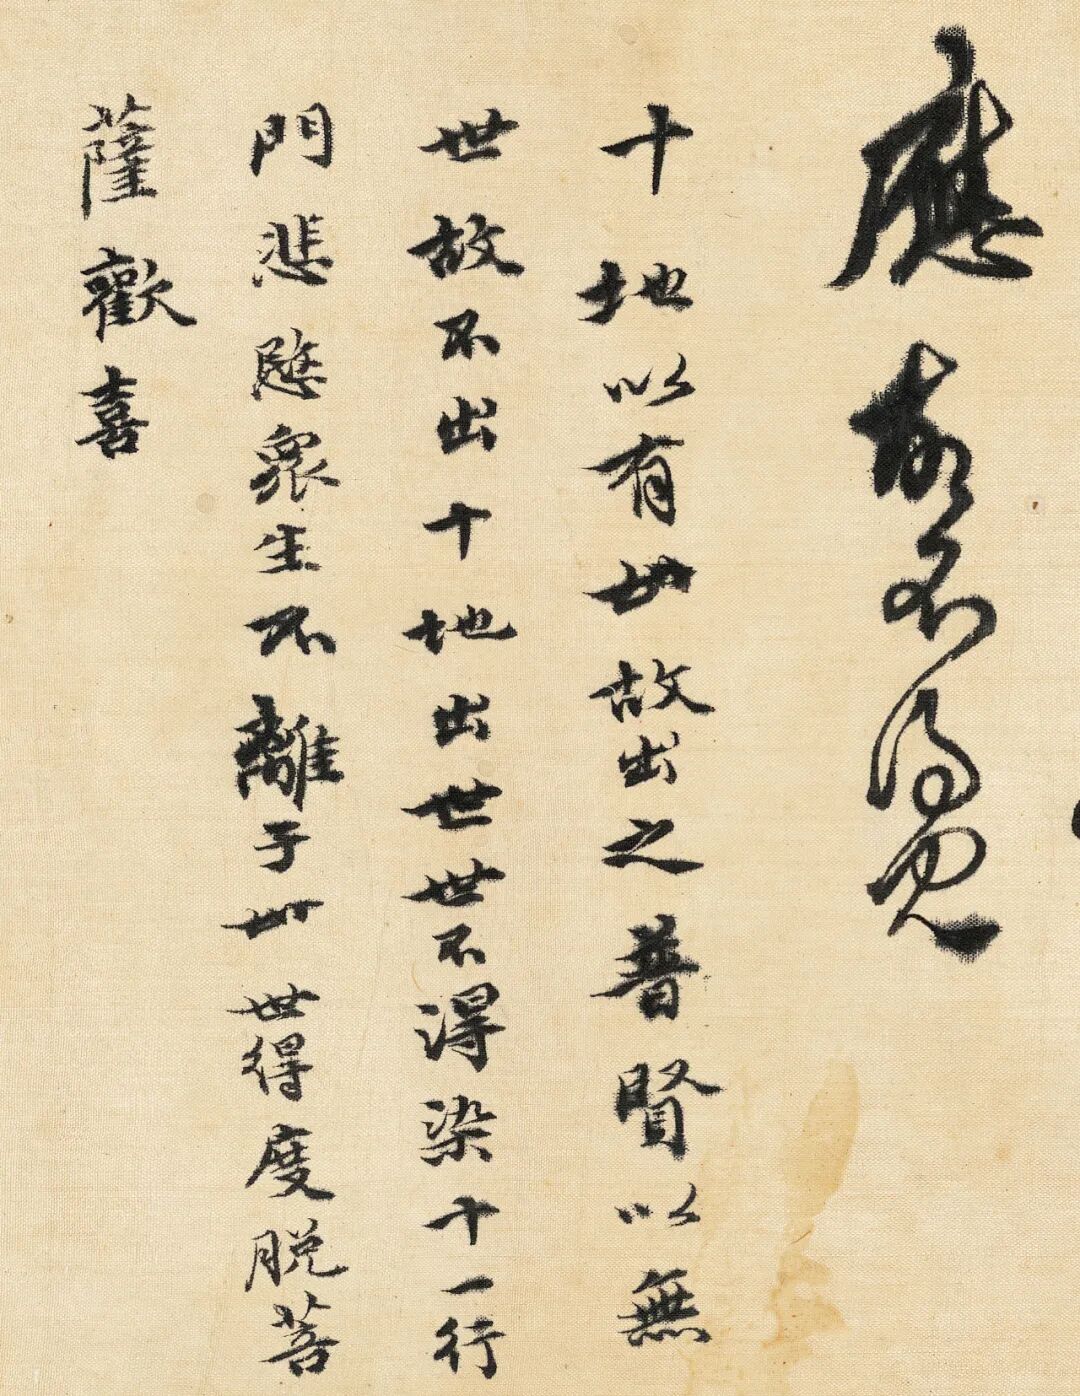 應故不得見
十地以有世故出之普賢以無
世故不出十地出世世不淂染十一行
門悲愍衆生不離于世世得度脫菩
薩歡喜